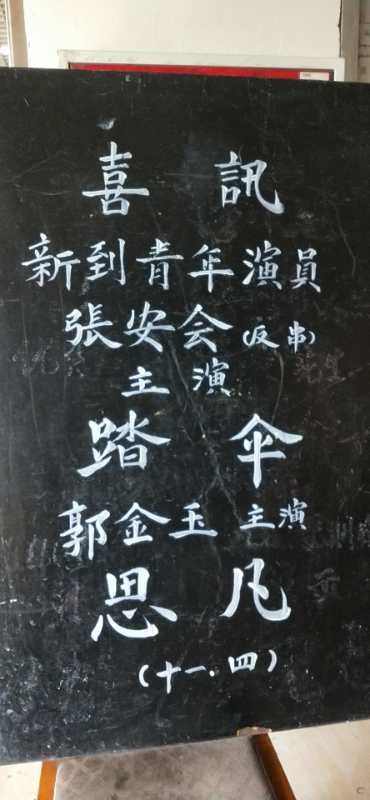 喜訊
新到青年演員
張安会(反串)
主演
踏伞
郭金玉 主演
思凡
(十一.四)